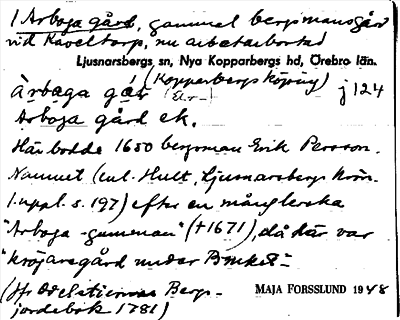 1 Arboga gård, gammal bergsmansgård
vid Kaveltorp, nu arbetarbostad
Ljusnarsbergs sn, Nya Kopparbergs hd, Örebro län.
(Kopparbergs köping)
j 124
Arboga gård ek.
Här bodde 1650 bergsman Erik Persson.
Namnet (enl. Hult, Ljusnarsbergs krön.
1. uppl. s. 197) efter en månglerska
"Arboga-gumman" († 1671), då där var
"kröjaregård under Bruket".
(Jfr Odelstiernas Bergs-
jordebok 1781)
MAJA FORSSLUND 1948